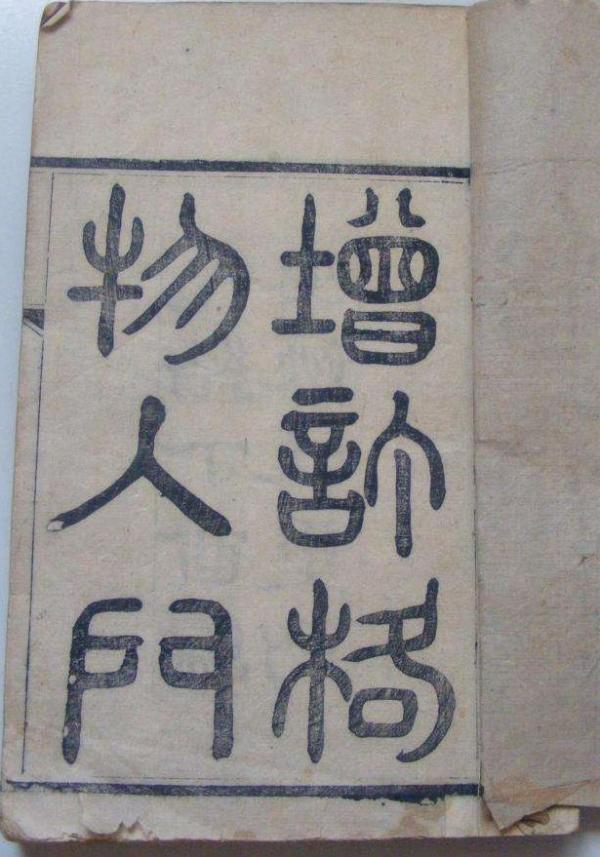 增訂格
物入門